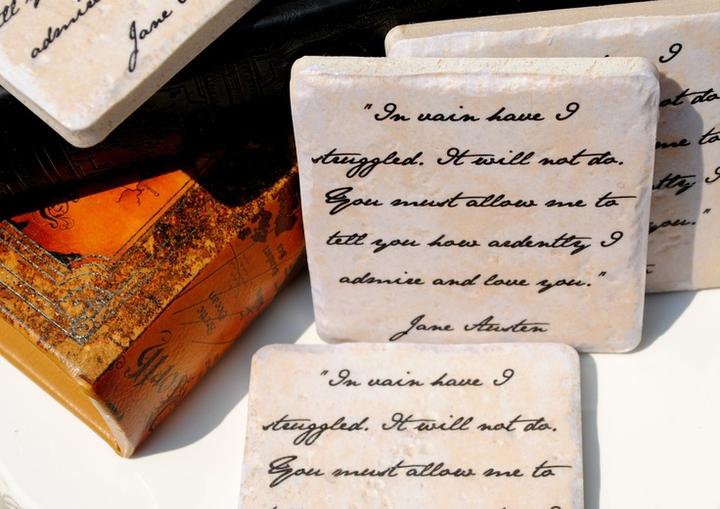 admire
Jane
"In vain have I
struggled. It will not do.
You must allow me to
tell you how ardently I
admire and love you."
Jane Austen
I
do.
me to
I
you."
"In vain have I
struggled. It will not do.
You must allow me to